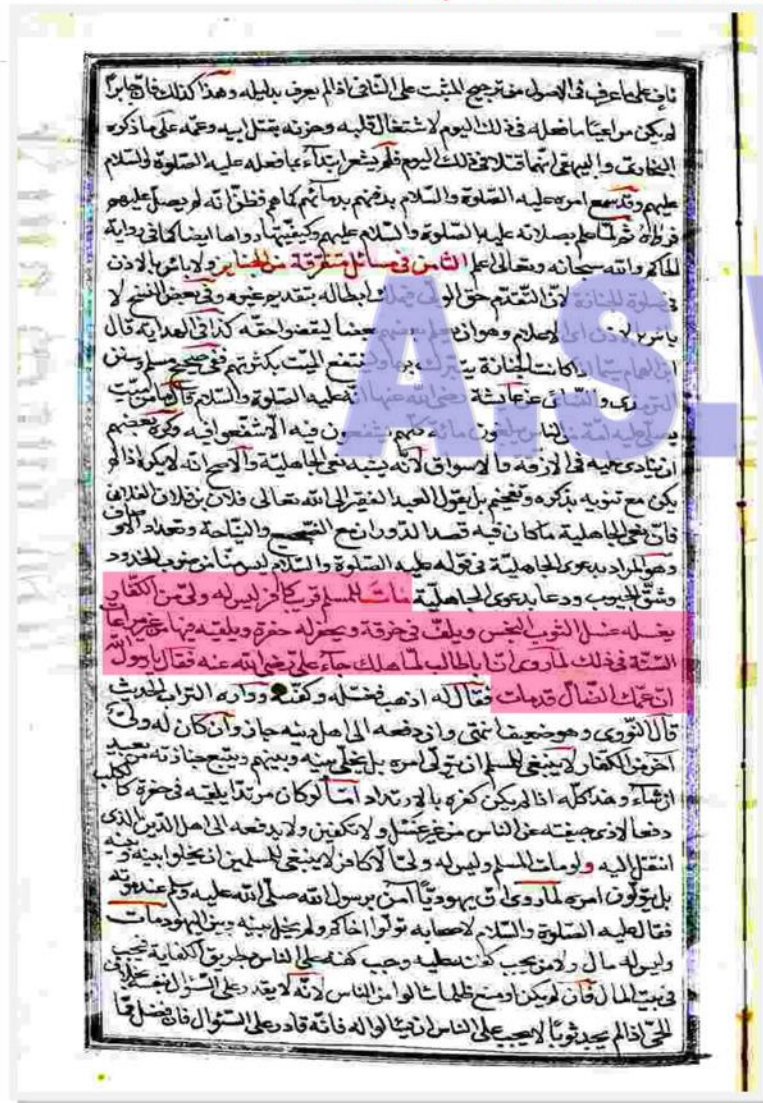 ناف على ما عرف فى الاصول من ترجيح المثبت على النافى اذا لم يعرف بدليله وهذا كذلك فان جابرا
لم يكن مراعيا ما فعله فى ذلك اليوم لاشتغال قلبه وحزنه بقتل ابيه وعمه على ما ذكره
البخارى والبيهقى انهما قتلا فى ذلك اليوم فلم يشعر ابتداء بما فعله عليه الصلوة والسلام
عليهم وقد سمع امره عليه الصلوة والسلام بدفنهم بدمائهم كما هم فظن انه لم يصل عليهم
فرواه ثم لما علم بصلاته عليه الصلوة والسلام عليهم وكيفيتها رواها ايضا كما فى رواية
الحاكم والله سبحانه وتعالى اعلم الثامن فى مسائل متفرقة من الجنايز ولا باس بالاذن
فى صلوة الجنازة لان التقدم حق الولى فيملك ابطاله بتقديم غيره وفى بعض النسخ لا
باس بالاذان اى الاعلام وهو ان يعلم بعضهم بعضا ليقضوا حقه كذا فى الهداية قال
ابن الهمام سيما اذا كانت الجنازة يتبرك بها ولينتفع الميت بكثرتهم ففى صحيح مسلم وسنن
الترمذى والنسائى عن عايشة رضى الله عنها انه عليه الصلوة والسلام قال ما من ميت
يصلى عليه امة من الناس يبلغون مائة كلهم يشفعون فيه الا شفعوا فيه وكره بعضهم
ان ينادى عليه فى الازقة والاسواق لانه يشبه نعى الجاهلية والاصح انه لا يكره اذا لم
يكن مع تنويه بذكره وتفخيم بل يقول العبد الفقير الى الله تعالى فلان بن فلان الفلانى
فان نعى الجاهلية ما كان فيه قصد الدوران مع الضجيج والنياحة وتعداد الاوصاف
وهو المراد بدعوى الجاهلية فى قوله عليه الصلوة والسلام ليس منا من ضرب الخدود
وشق الجيوب ودعا بدعوى الجاهلية مات للمسلم قريب كافر ليس له ولى من الكفار
يغسله غسل الثوب النجس ويلف فى خرقة ويحفر له حفرة ويلقيه فيها من غير مراعاة
السنة فى ذلك لما روى ان ابا طالب لما هلك جاء على رضى الله عنه فقال يا رسول الله
ان عمك الضال قد مات فقال له اذهب فغسله وكفنه وواره التراب الحديث
قال النووى وهو ضعيف انتهى وان دفعه الى اهل دينه جاز وان كان له ولى
آخر من الكفار لا ينبغى للمسلم ان يتولى امره بل يخلى بينه وبينهم ويتبع جنازته من بعيد
ان شاء وهذا كله اذا لم يكن كفره بالارتداد اما لو كان مرتدا يلقيه فى حفرة كالكلب
دفعا لاذى جيفته عن الناس من غير غسل ولا تكفين ولا يدفعه الى اهل الدين الذى
انتقل اليه ولو مات المسلم وليس له ولى الا كافر لا ينبغى للمسلمين ان يخلوا بينه وبينه
بل يتولون امره لما روى ان يهوديا آمن برسول الله صلى الله عليه وسلم عند موته
فقال عليه الصلوة والسلام لاصحابه تولوا اخاكم ولم يخل بينه وبين اليهود مات
وليس له مال ولا من يجب كفنه عليه وجب كفنه على الناس بطريق الكفاية تجب
فى بيت المال فان لم يكن او منع ظلما سالوا من الناس لانه لا يقدر على السؤال بنفسه بخلاف
الحى اذا لم يجد ثوبا لا يجب على الناس ان يسالوا له فانه قادر على السؤال فان فضل مما
A.S.